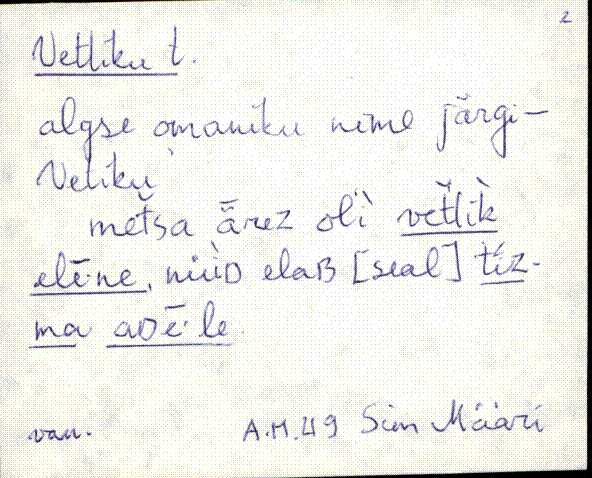 2
Vetliku t.
algse omaniku nime järgi -
Vetiku
met̆sa ǟrez oĺi vet̆lik̀
elē·ne, nüüD elaB [seal] tiz-
ma aDē·le.
van. A.M. 49 Sim Määri